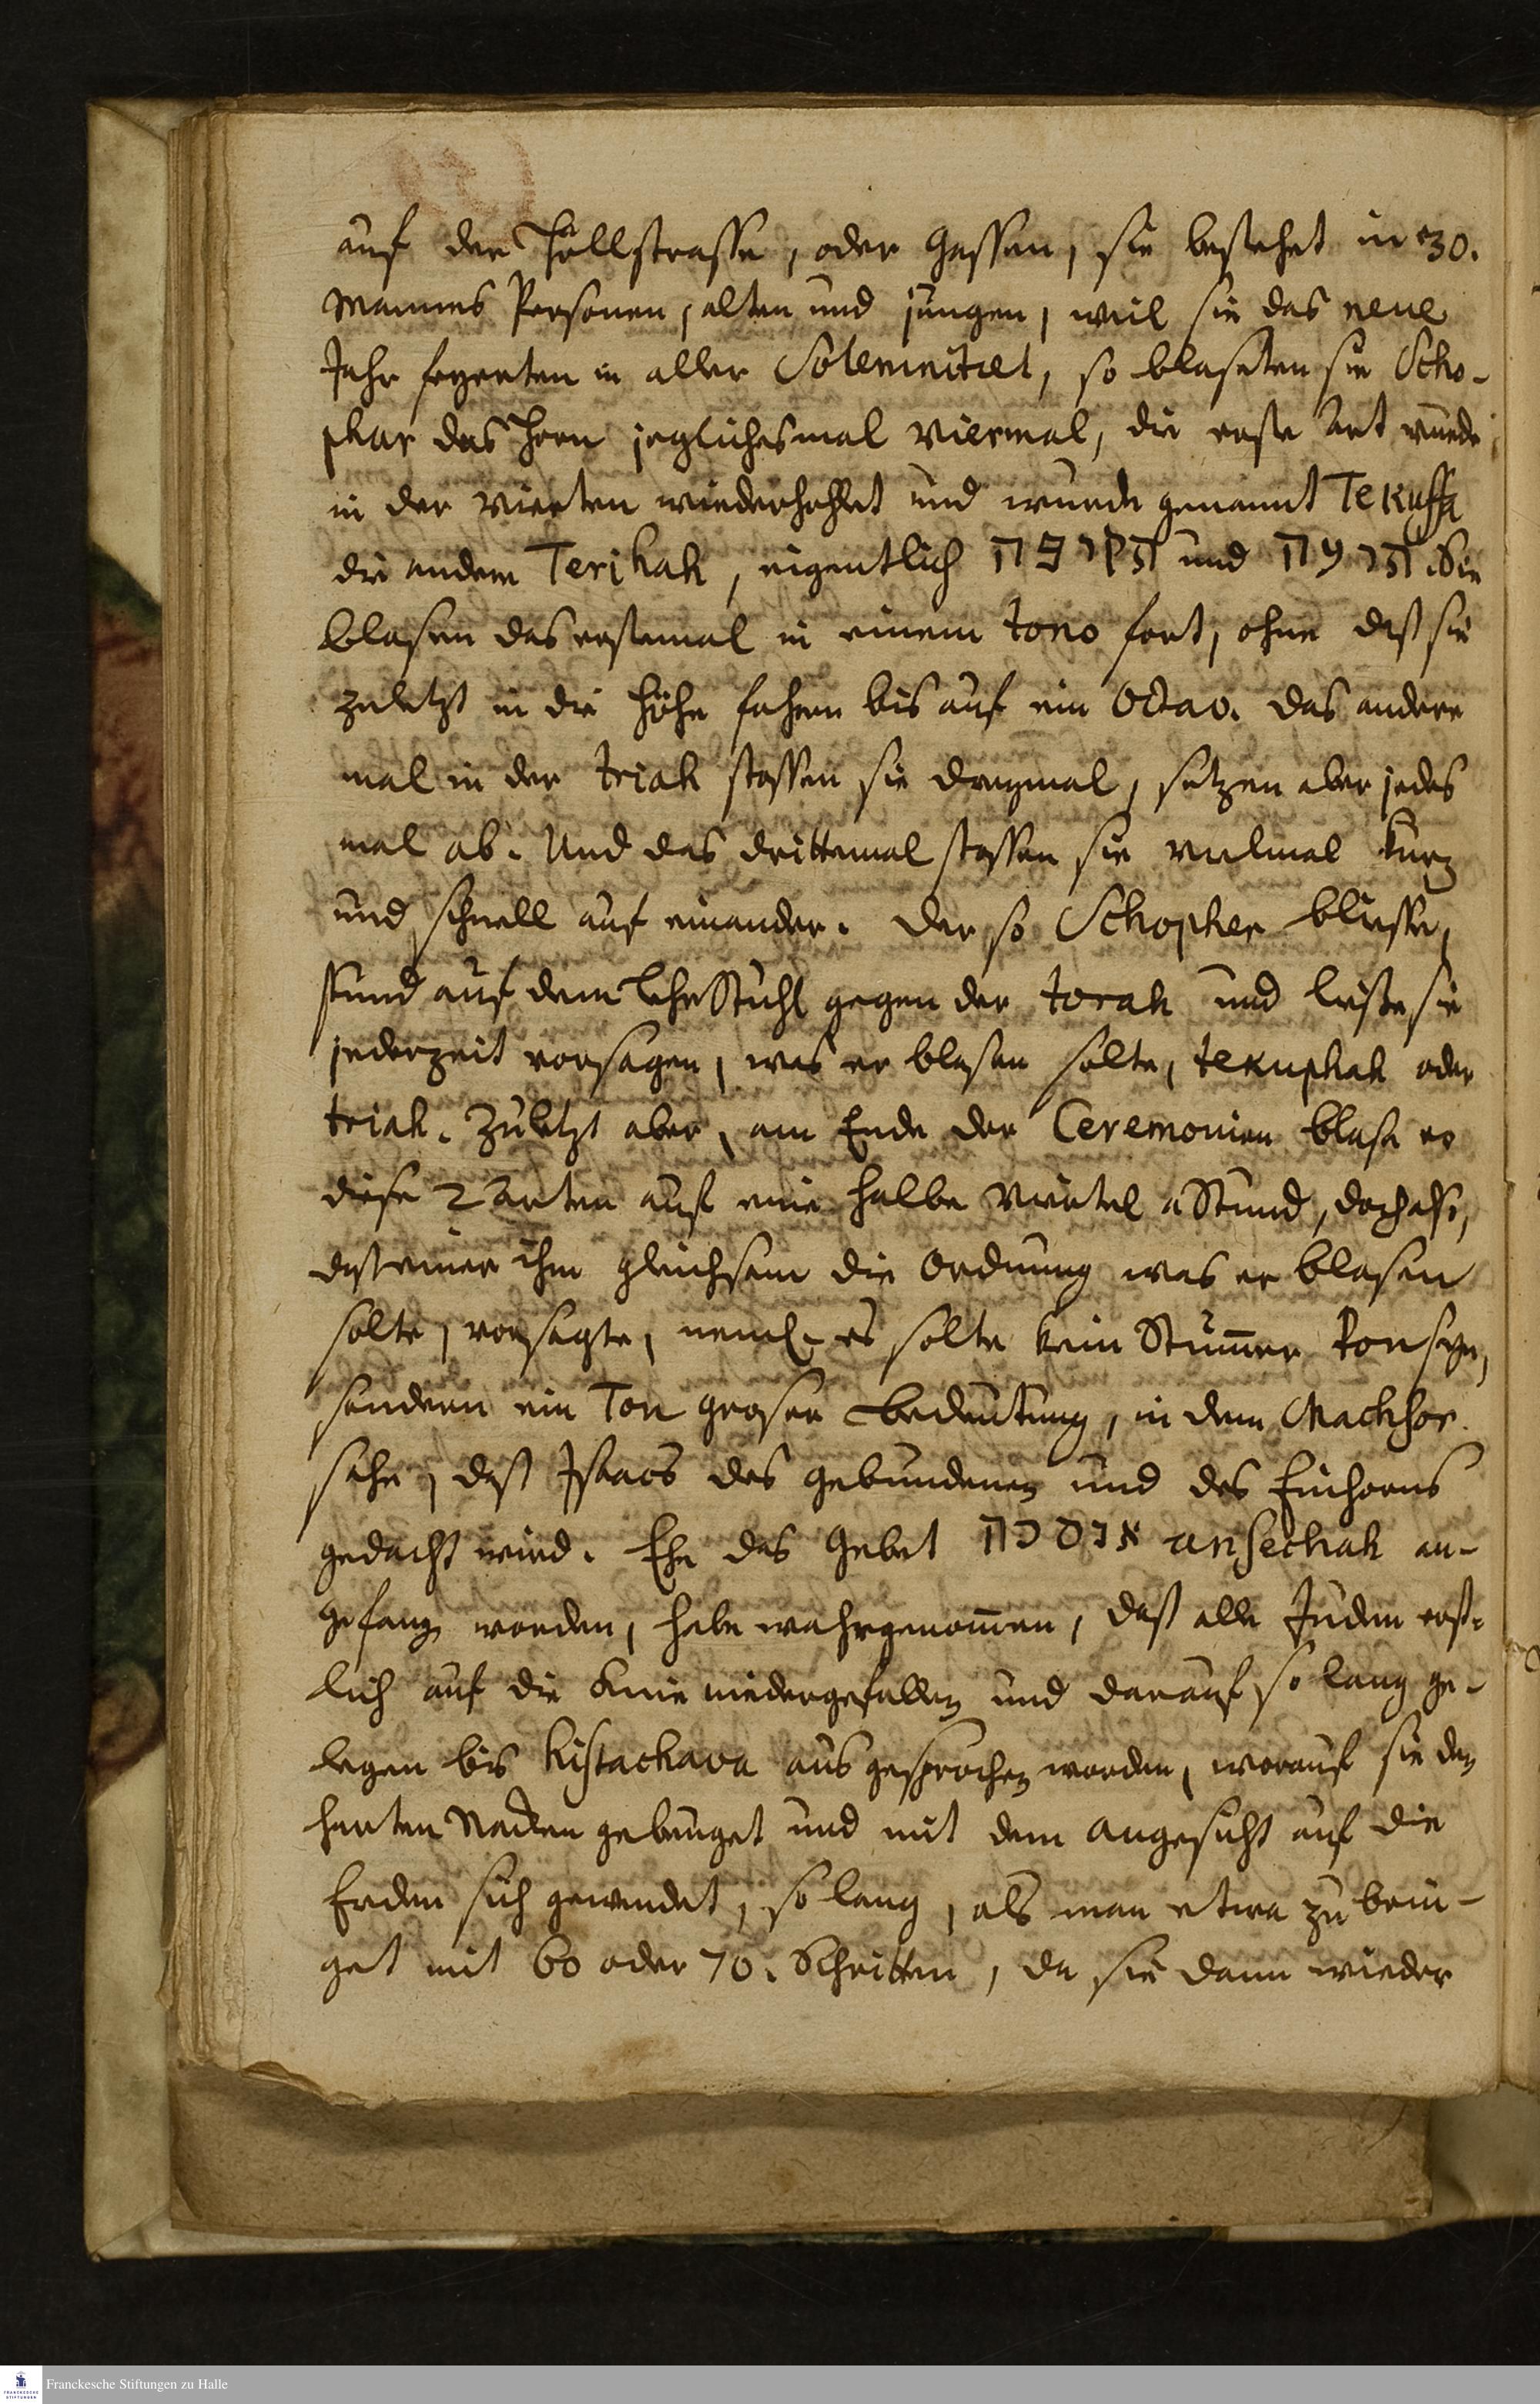 auf der Höllstrasse, oder Gassen, sie bestehet in 30.
Manns Personen, alten und jungen, weil sie das neue
Jahr feyerten in aller Solemnitæt, so blaseten sie Scho-
phar das Horn jeglichesmal Viermal, die erste Art wurde
in der vierten wiederhohlet und wurde genannt Tekuffa
die andern Terihah, eigentlich תקופה und תרועה. Sie
blasen das erstemal in einem tono fort, ohne daß sie
zuletzt in die Höhe fahren bis auf ein Octav. Das andere
mal in der triah stossen sie dreymal, setzen aber jedes
mal ab. Und das drittemal stossen sie vielmal kurz
und schnell auf einander. Der so Schopher bliesse,
stund auf dem LehrStuhl gegen der torah und liesse sie
jederzeit vorsagen, was er blasen solte, tekuphah oder
triah. Zuletzt aber, am Ende der Ceremonien blase er
diese 2 Arten auf eine halbe Viertel Stund, doch also,
daß einer ihm gleichsam die Ordnung was er blasen
solte, vorsagte, neml. es solte kein Stummer Ton seyn,
sondern ein Ton groser Bedeutung, in dem Machsor
sehe, daß Isaacs des gebundenen und des Einhorns
gedacht wird. Ehe das Gebet אנסכה ansechah an-
gefang worden, habe wahrgenommen, daß alle Juden erst-
lich auf die Knie niedergefallen und darauf so lang ge-
legen bis histachava ausgesprochen worden, worauf sie den
harten Nacken gebeuget und mit dem Angesicht auf die
Erden sich gewendet, so lang, als man etwa zu brin-
get mit 60 oder 70. Schritten, da sie dann wieder
Franckesche Stiftungen zu Halle